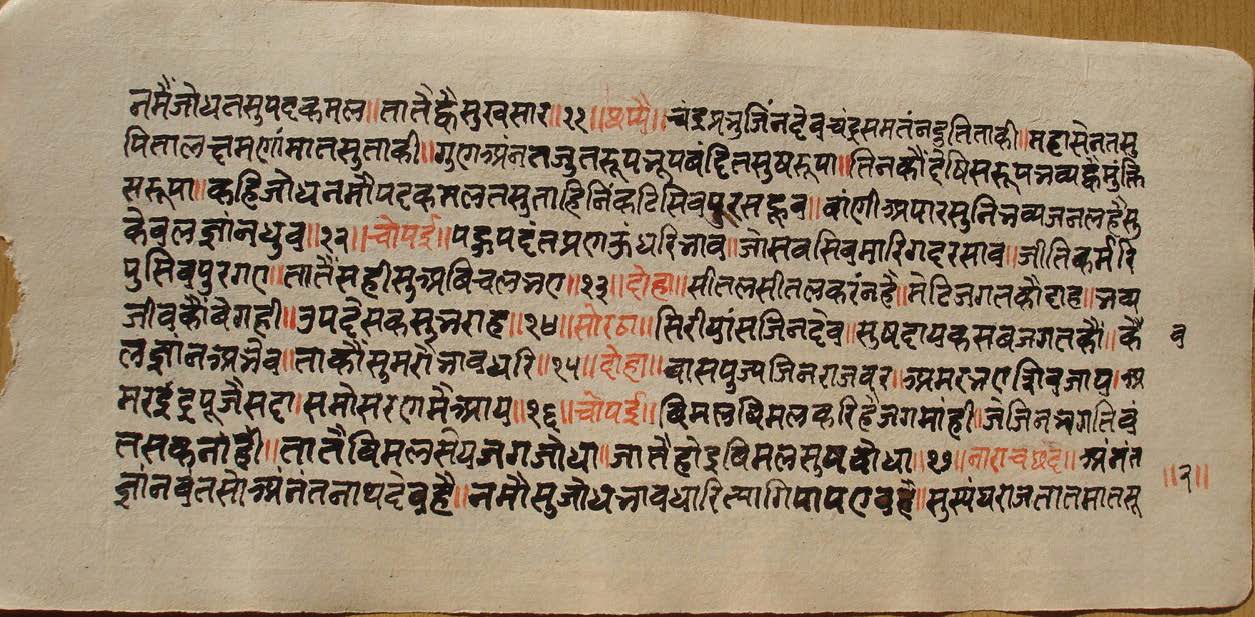 नमैंजोधतसुपदकमल॥तातैंह्वैसुखसार॥२२॥छप्पै॥चंद्रप्रभुजिंनदेवचंद्रसमतंनदुतिताकी॥महासेनतसु
पितालछमणांमातसुताकी॥गुणअंनतजुतरूपभूपवंदितसुषरूपा॥तिनकौंदेषिसरूपभव्यह्वैमुक्ति
सरूपा॥कहिजोधनमौंपदकमलतसुताहिनिंकटिसिवपुरसहूव॥वांणीअपारसुनिभव्यजनलहैसु
केवलज्ञांनधुव॥२२॥चौपई॥पहुपदंतप्रणऊंधरिभाव॥जोसवसिवमारिगदरसाव॥जीतिकर्मरि
पुसिवपुरगए॥तातैंसहीसुअविचलभए॥२३॥दोहा॥सीतलसीतलकरंनहै॥मेटिजगतकौदाह॥भव्य
जीवकौंवेगही॥उपदेसकसुभराह॥२४॥सोरठा॥सिरीयांसजिनदेव॥सुषदायकसबजगतकौं॥के व
लज्ञानअभेव॥ताकौंसुमरौंभावधरि॥२५॥दोहा॥वासपुज्यजिनराजवर॥अमरभएशिवजाय॥अ
मरइंद्रपूजैसदा॥समोसरणमैआय॥२६॥चौपई॥विमलविमलकरिहैजगमांही॥जेजिनभगतिवं
तसकनाही॥तातैविमलसेयजगजोधा॥जातैहोइविमलसुषवोधा॥२७॥नाराचछंद॥अंनंत
ज्ञांनवंतसोअंनंतनाथदेवहै॥नमौसुजोधभावधारित्यागिपापएवहै॥सुस्यंघराजतातमातसू
॥२॥